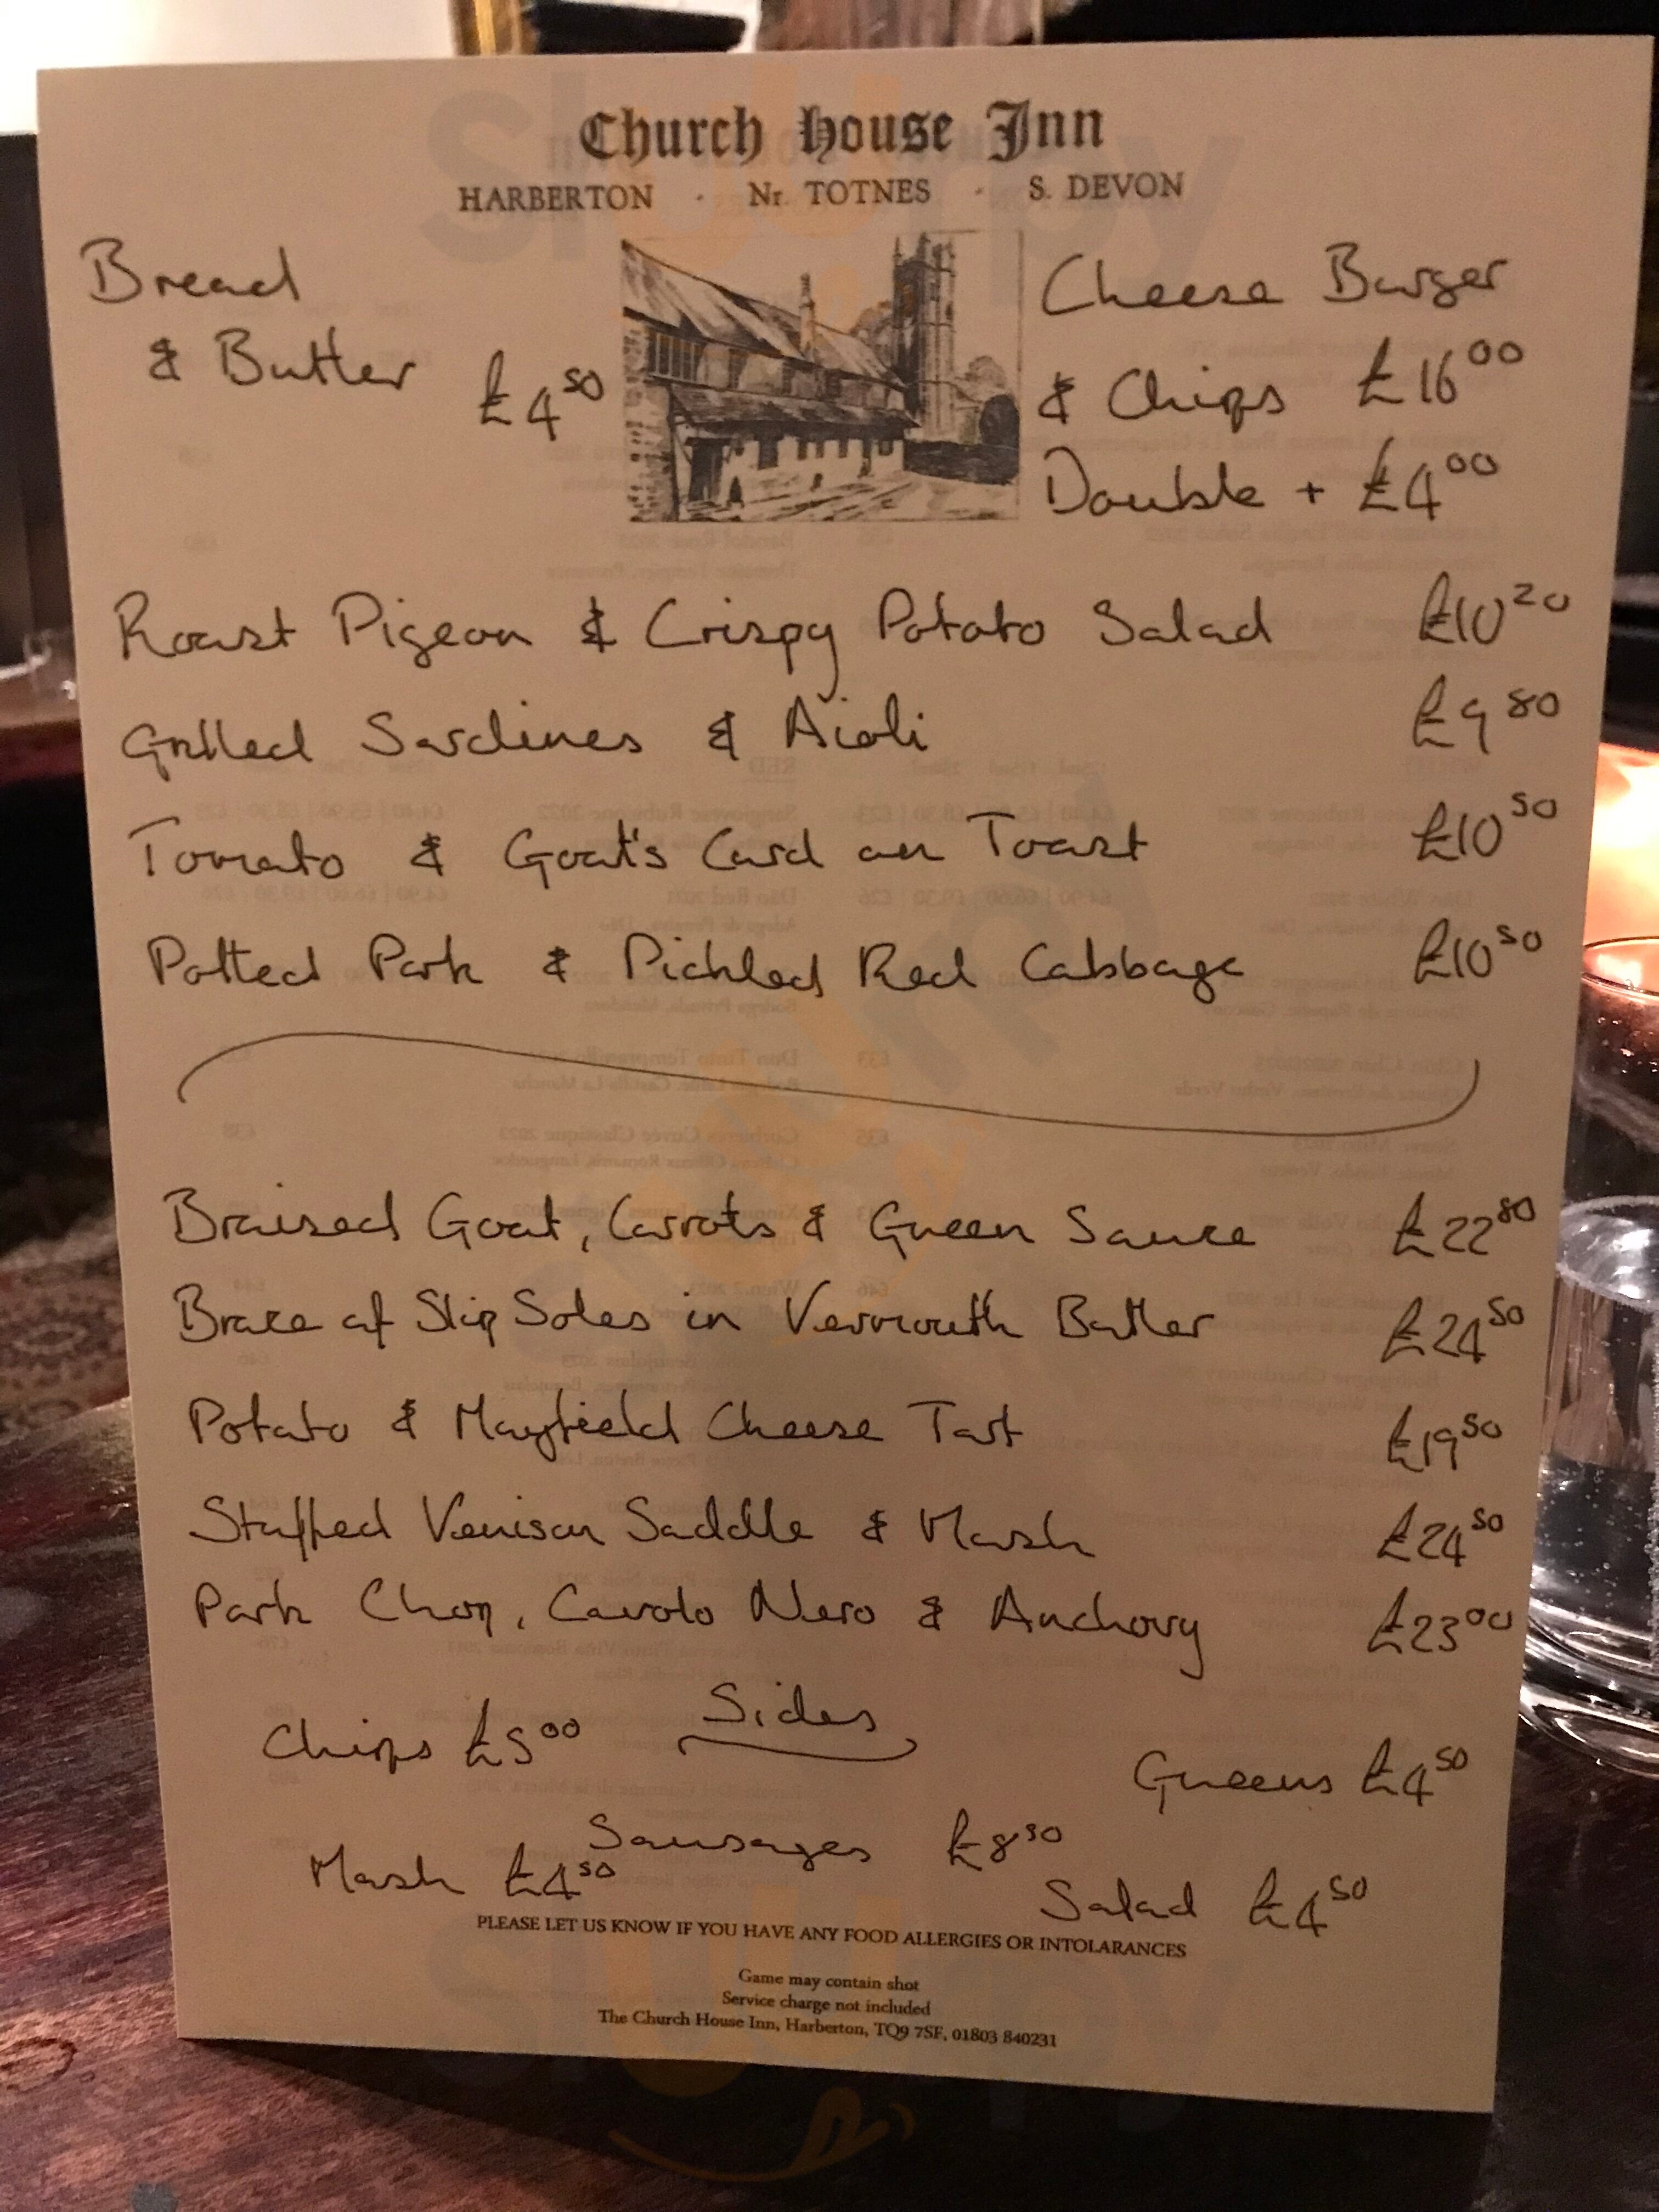 Church House Inn
HARBERTON · Nr. TOTNES · S. DEVON
Bread
& Butter £4.50
Cheese Burger
& Chips £16.00
Double + £4.00
Roast Pigeon & Crispy Potato Salad £10.20
Grilled Sardines & Aioli £9.80
Tomato & Goat's Curd on Toast £10.50
Potted Pork & Pickled Red Cabbage £10.50
Braised Goat, Carrots & Green Sauce £22.80
Brace of Slip Soles in Vermouth Butter £24.50
Potato & Mayfield Cheese Tart £19.50
Stuffed Venison Saddle & Mash £24.50
Pork Chop, Cavolo Nero & Anchovy £23.00
Sides
Chips £5.00
Greens £4.50
Sausages £8.50
Mash £4.50
Salad £4.50
PLEASE LET US KNOW IF YOU HAVE ANY FOOD ALLERGIES OR INTOLARANCES
Game may contain shot
Service charge not included
The Church House Inn, Harberton, TQ9 7SF, 01803 840231